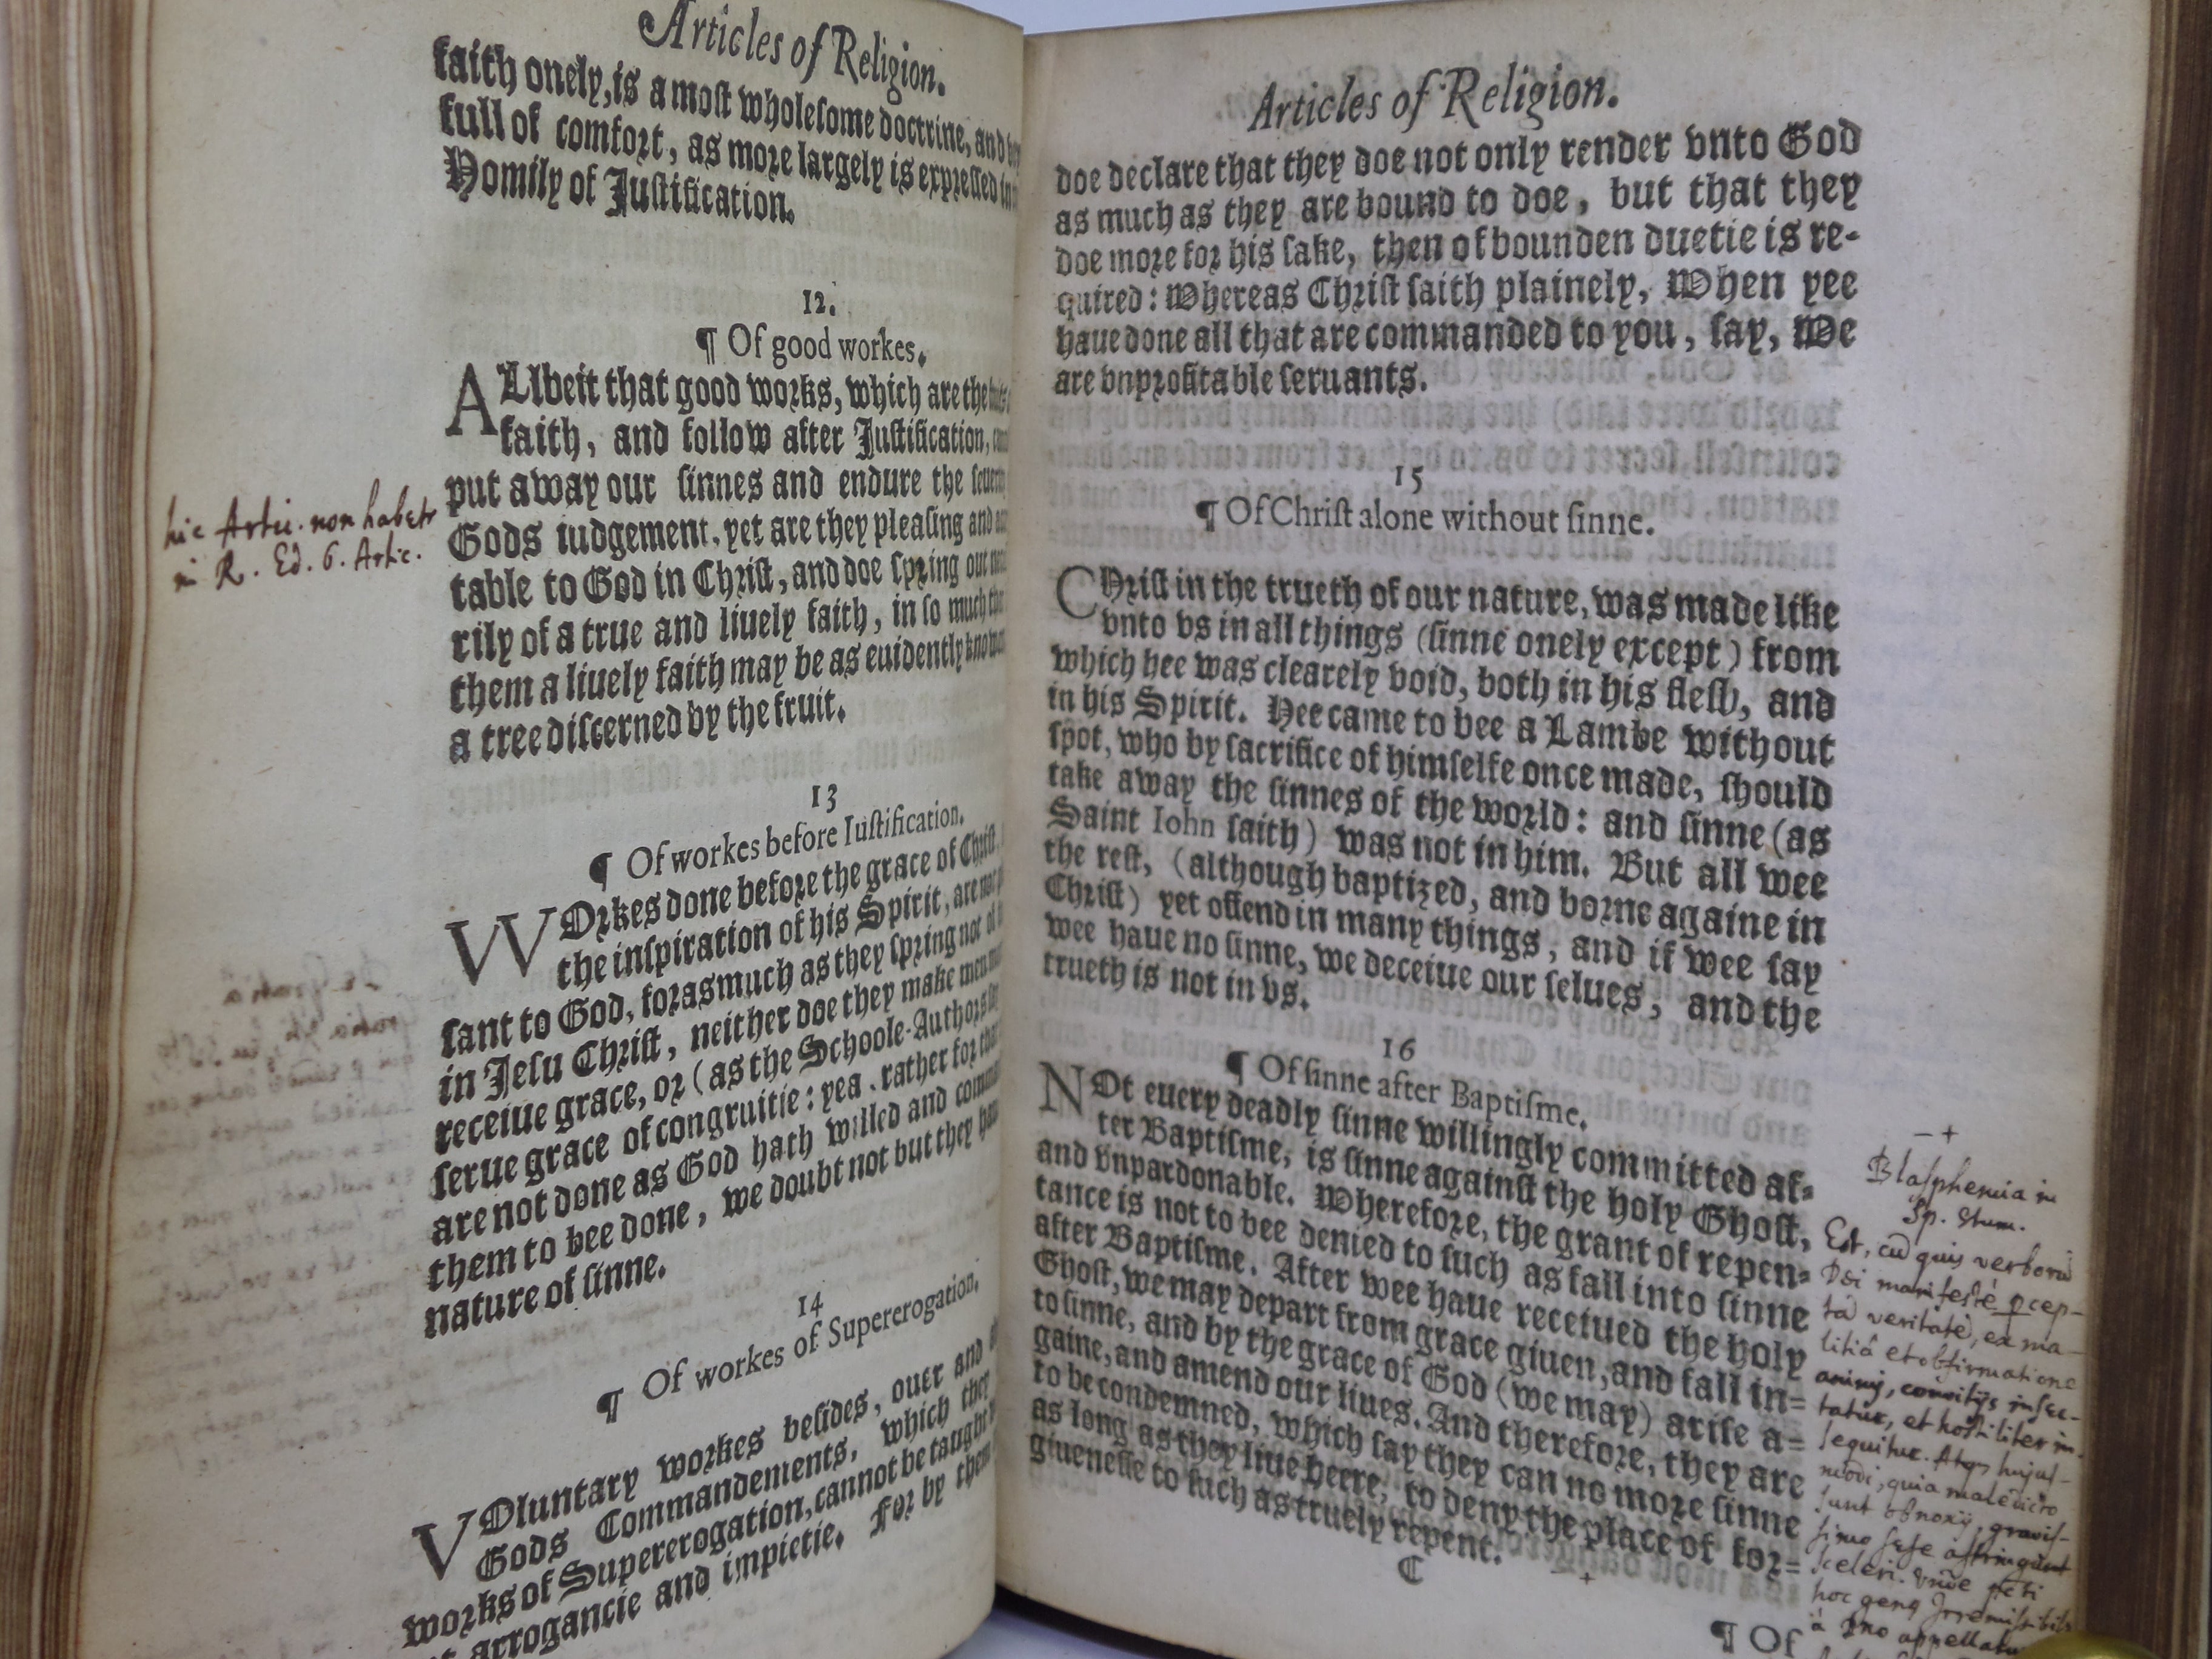 Articles of Religion.
faith onely, is a most wholesome doctrine, and
full of comfort, as more largely is expressed in
Homily of Iustification.
12.
¶ Of good workes.
ALlbeit that good works, which are the
faith, and follow after Iustification,
put away our sinnes and endure the
Gods iudgement, yet are they pleasing and
table to God in Christ, and doe spring out
rily of a true and liuely faith, in so much
them a liuely faith may be as euidently
a tree discerned by the fruit.
13
¶ Of workes before Iustification.
WOrkes done before the grace of Christ
the inspiration of his Spirit, are not
sant to God, forasmuch as they spring not of
in Iesu Christ, neither doe they make men
receiue grace, or (as the Schoole-Authors
serue grace of congruitie: yea, rather for
are not done as God hath willed and
them to bee done, we doubt not but they
nature of sinne.
14
¶ Of workes of Supererogation.
VOluntary workes besides, ouer and
Gods Commandements, which they
works of Supererogation, cannot be taught
arrogancie and impietie. For by them
hic Artic. non habetr
in R. Ed. 6. Artic.
Articles of Religion.
doe declare that they doe not only render vnto God
as much as they are bound to doe, but that they
doe more for his sake, then of bounden duetie is re-
quired: Whereas Christ saith plainely, When yee
haue done all that are commanded to you, say, We
are vnprofitable seruants.
15
¶ Of Christ alone without sinne.
CHrist in the trueth of our nature, was made like
vnto vs in all things (sinne onely except) from
which hee was clearely void, both in his flesh, and
in his Spirit. Hee came to bee a Lambe without
spot, who by sacrifice of himselfe once made, should
take away the sinnes of the world: and sinne (as
Saint Iohn saith) was not in him. But all wee
the rest, (although baptized, and borne againe in
Christ) yet offend in many things, and if wee say
wee haue no sinne, we deceiue our selues, and the
trueth is not in vs.
16
¶ Of sinne after Baptisme.
NOt euery deadly sinne willingly committed af-
ter Baptisme, is sinne against the holy Ghost,
and vnpardonable. Wherefore, the grant of repen-
tance is not to bee denied to such as fall into sinne
after Baptisme. After wee haue receiued the holy
Ghost, we may depart from grace giuen, and fall in-
to sinne, and by the grace of God (we may) arise a-
gaine, and amend our liues. And therefore, they are
to be condemned, which say they can no more sinne
as long as they liue heere, to deny the place of for-
giuenesse to such as truely repent.
C
¶ Of
Blasphemia in
Sp. Stum.
Est, cū quis verborū
Dei manifestè pcep-
tā veritatē, ex ma-
litiâ et obfirmatione
animj, convitijs insec-
tatur, et hostiliter in-
sequitur. Atq hujus-
modi, quia maledicto
sunt obnoxij, gravis-
simo sese astringunt
sceleri. Vnde
hoc genq Irremissibile
à Dno appellatur